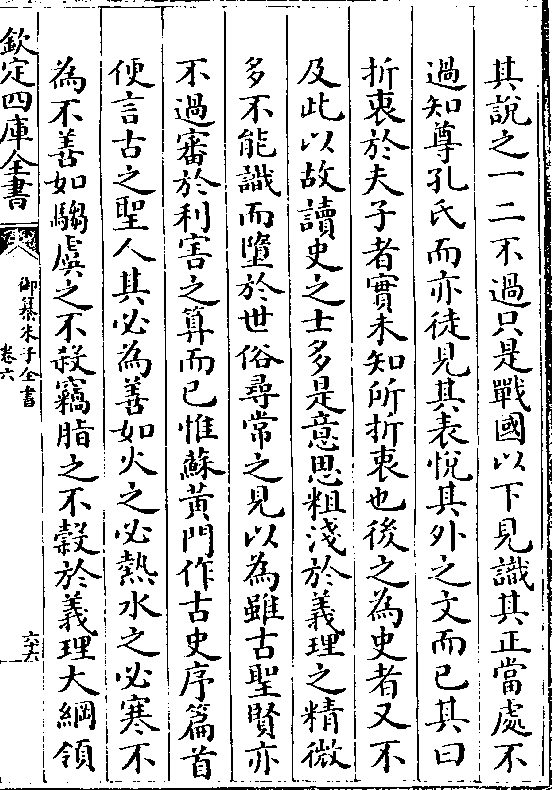 其說之一二不過只是戰國以下見識其正當處不
過知尊孔氏而亦徒見其表悅其外之文而已其曰
折衷於夫子者實未知所折衷也後之為史者又不
及此以故讀史之士多是意思粗淺於義理之精微
多不能識而墮於世俗尋常之見以為雖古聖賢亦
不過審於利害之算而已惟蘇黃門作古史序篇首
便言古之聖人其必為善如火之必熱水之必寒不
為不善如騶虞之不殺竊脂之不穀於義理大綱領
欽定四庫全書
御纂朱子全書
卷六
六十六